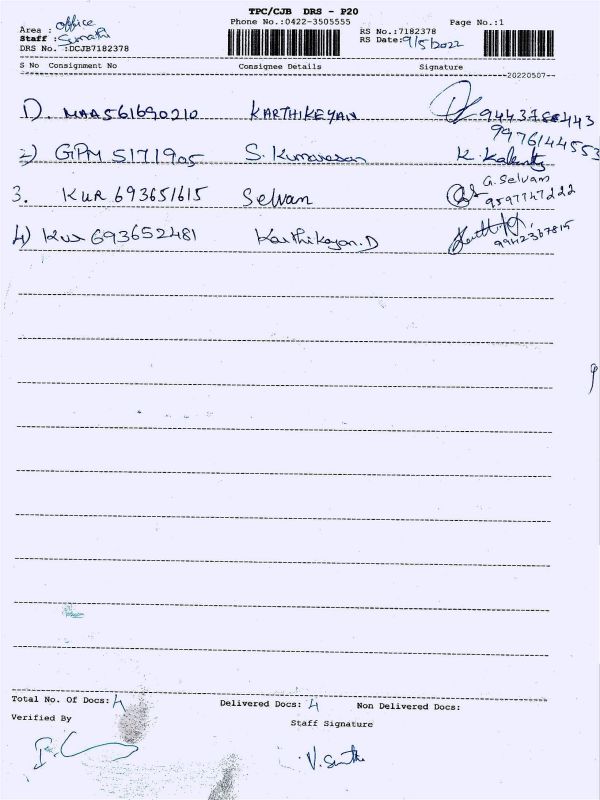 TPC/CJB DRS - P20
Phone No.:0422-3505555 Page No.:1
Area : office RS No.:7182378
Staff : Sumathi RS Date:9/5/2022
DRS No. :DCJB7182378
S No Consignment No Consignee Details Signature
20220507
1). MAA561690210 KARTHIKEYAN
9976144553
2) GPM 5171905 S. Kumaresan K.
G. Selvam
3. KUR 693651615 Selvan 9597747222
4) KUR 693652481 Karthikeyan.D 9942367815
Total No. Of Docs: 4 Delivered Docs: 4 Non Delivered Docs:
Verified By Staff Signature